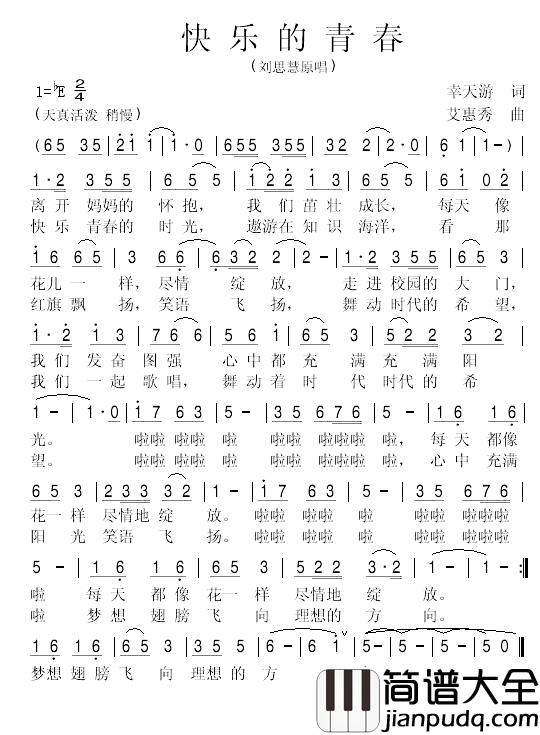 快乐的青春
(刘思慧原唱)
1=♭E 2/4
幸天游 词
(天真活泼 稍慢)
艾惠秀 曲
(65 35 | 2̇1 1̇ | 1̇·0 | 6555 355 | 32 2 | 2·0 | 61 1 | 1-) |
1·2 355 | 65 5 | 122 13 | 65 5 | 61 02 |
离开 妈妈的 怀抱, 我们 茁壮 成长, 每天 像
快乐 青春的 时光, 遨游在 知识 海洋, 看 那
花儿 一样, 尽情 绽放, 走进 校园的 大门,
红旗 飘扬, 笑语 飞扬, 舞动 时代的 希望,
1·2 13 | 76 6 | 63 35 | 522 32 |
我们 发奋 图强 心中都 充满 充满 阳
我们 一起 歌唱, 舞动着 时代 时代的 希
光。 啦啦 啦啦 啦 啦啦 啦啦啦 啦, 每天 都像
望。 啦啦 啦啦 啦 啦啦 啦啦啦 啦, 心中 充满
653 | 233 32 | 1- | 17 63 | 5- | 35 676 |
花一样 尽情地 绽放。 啦啦 啦啦 啦 啦啦 啦啦啦
阳光 笑语 飞扬。 啦啦 啦啦 啦 啦啦 啦啦啦
5- | 16 16 | 653 | 355 522 | 3·2 | 1- | 1- :‖
啦 每天 都像 花一样 尽情地 绽放。
啦 梦想 翅膀 飞向 理想的 方向。
16 16 | 653 | 355 5 | 6- | 6- | 6 1 | 5- | 5- | 5- | 50 ‖
梦想 翅膀 飞向 理想的 方
简谱大全
jianpudq.com